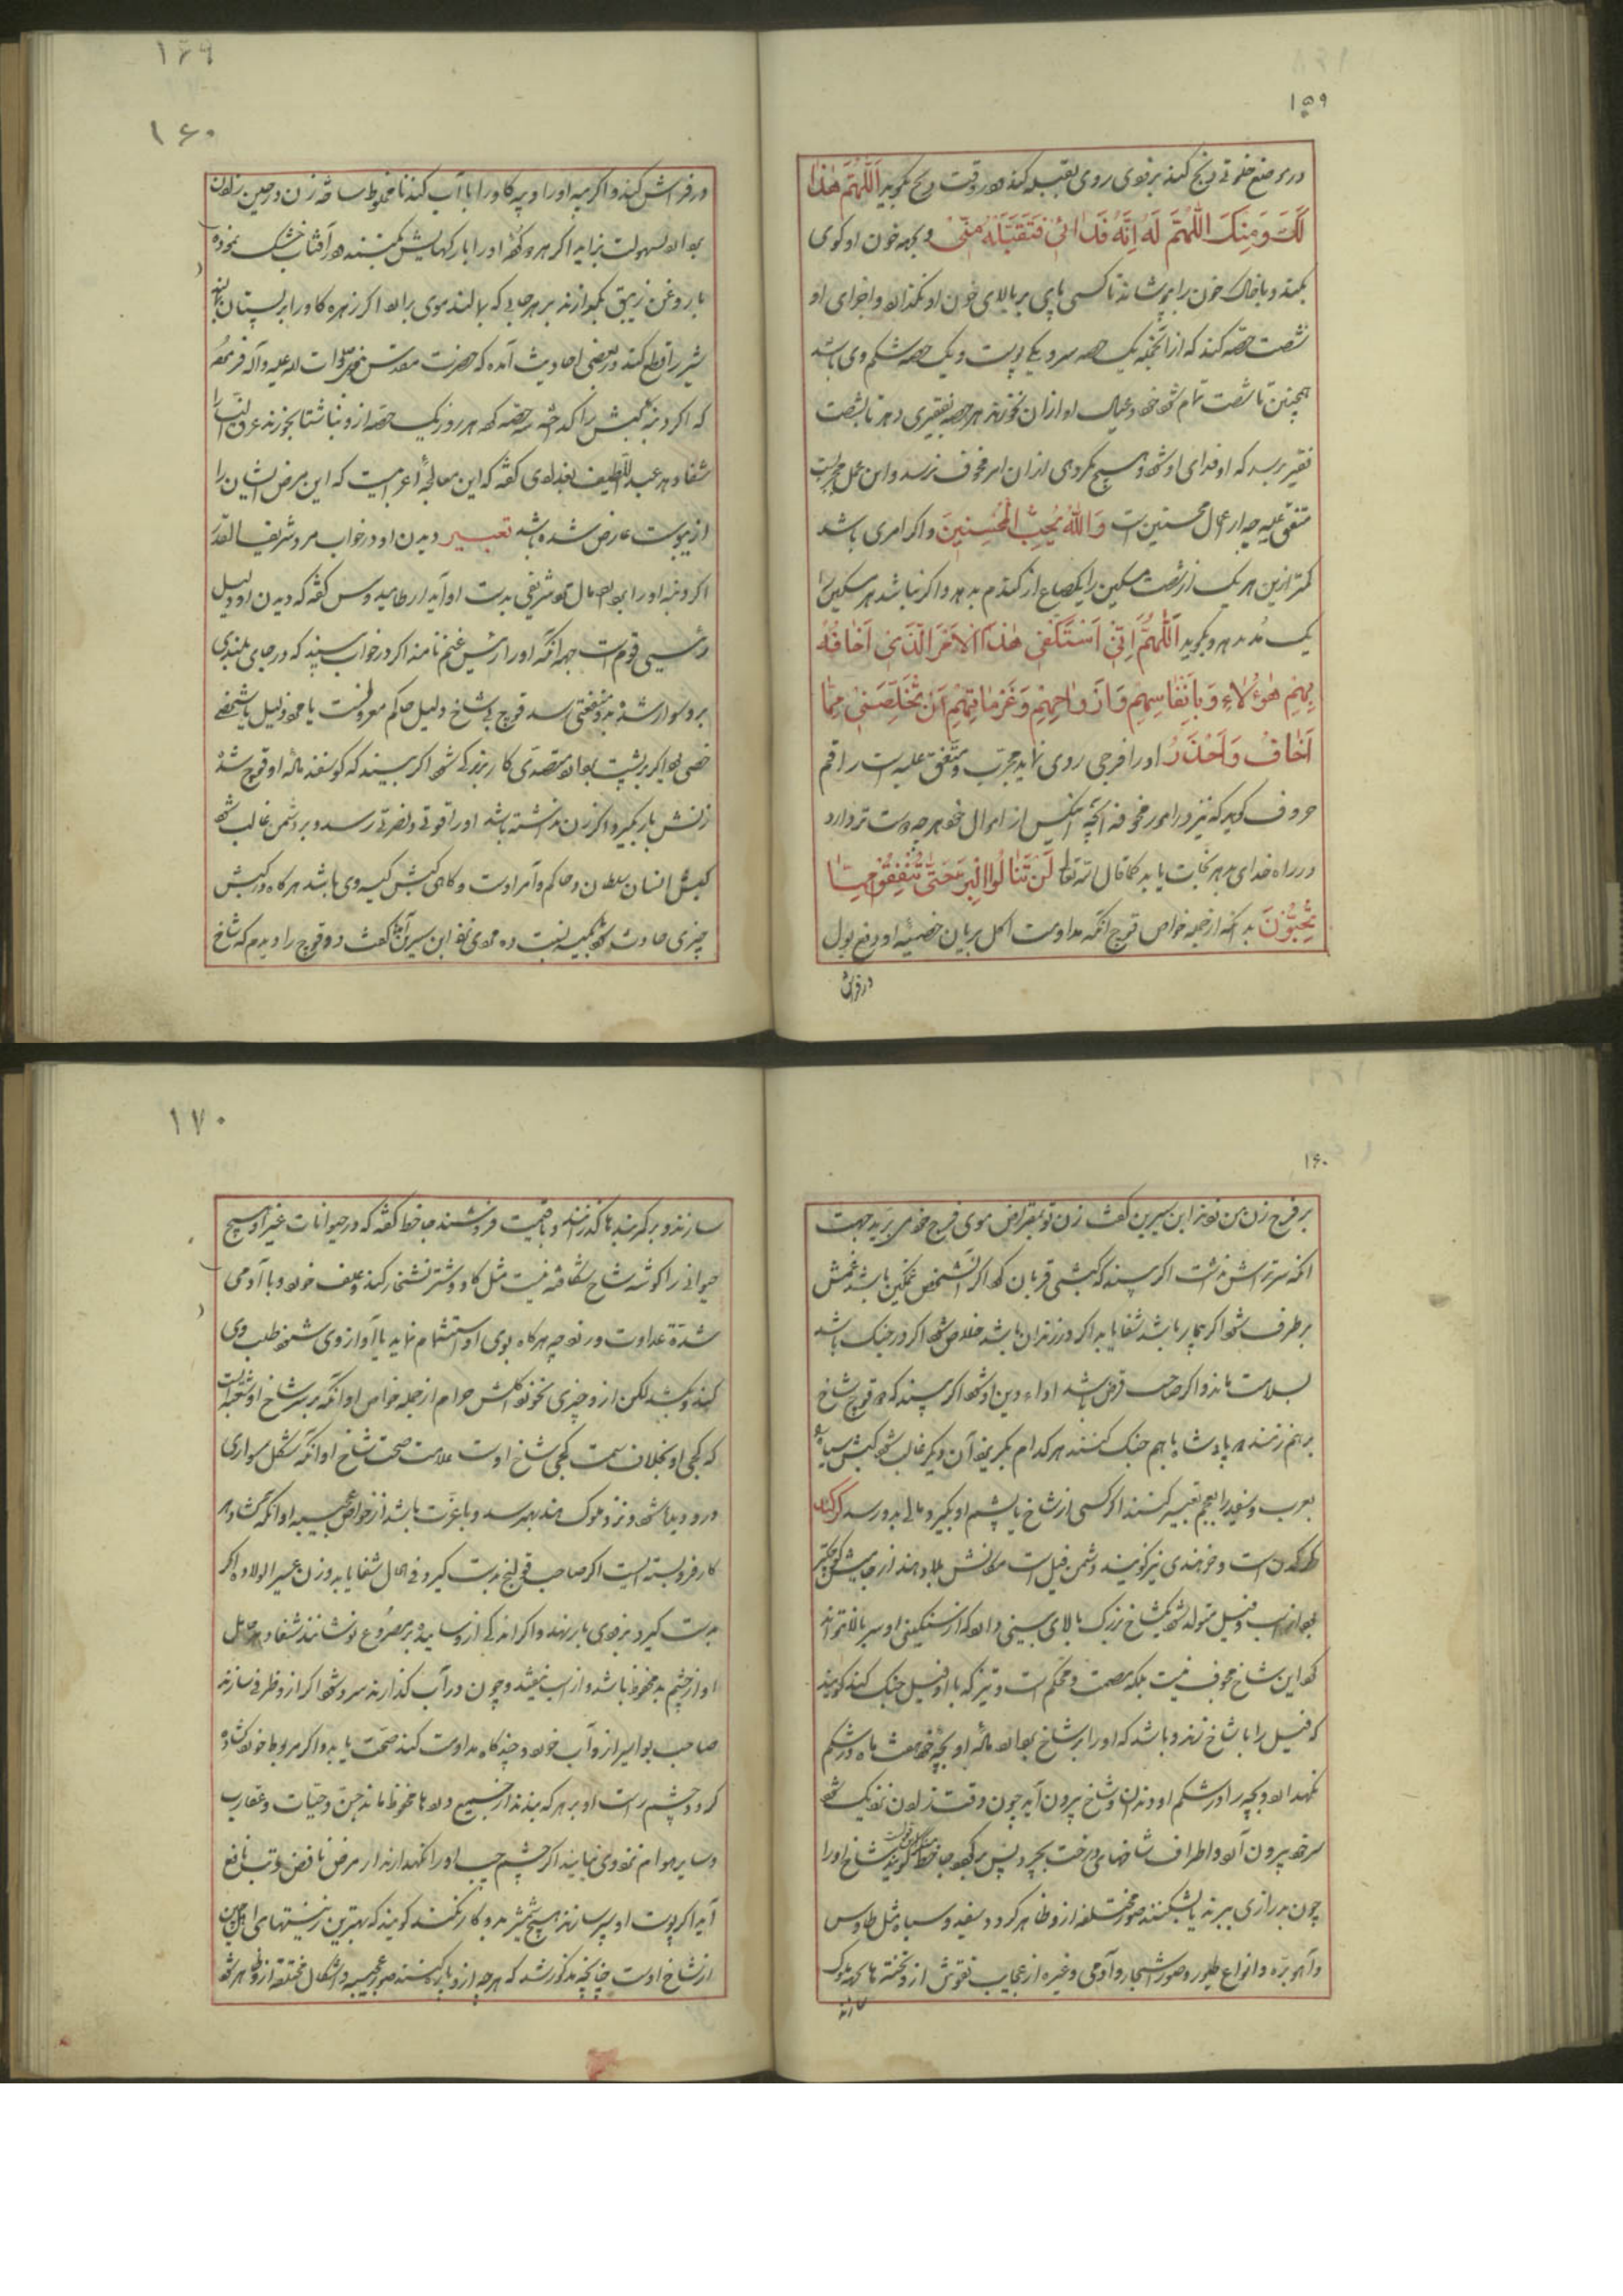 ۱۵۹
در موضع خلوتی ذبح کند بر قوی روی بقبله کند و در وقت ذبح بگوید اَللّهُمَّ هٰذا
لَكَ وَمِنكَ اللّهُمَّ لَهُ اِنَّهُ فَدائی فَتَقَبَّلْهُ مِنّی و بجهه خون او کوی
بکند و با خاک خون را بپوشاند تا کسی پای بر بالای خون او نگذارد و اجزای او
شصت حصه کند که از آنجمله یک حصه سر و یکی پوست و یک حصه شکم وی باشد
همچنین تا شصت تمام شود خود و عیال او از آن نخورند هر حصه بفقیری دهد تا بشصت
فقیر برسد که او فدای او شود و هیچ مکروهی از ان امر مخوف نرسد و این عمل مجربست
متفق علیه چه از اعمال محسنین است وَاللهُ یُحِبُّ الْمُحْسِنینَ و اکر امری باشد
کمتر ازین هر یک از شصت مسکین را یکصاع از کندم بدهد و اکر نباشد هر مسکین را
یک مُد بدهد و بگوید اَللّهُمَّ اِنّی اَسْتَکْفی هٰذَا الْاَمْرَ الَّذی اَخافُهُ
بِهِمْ هٰؤُلاءِ وَبِاَنفاسِهِمْ وَاَرْواحِهِمْ وَعَزَماتِهِمْ اَنْ تُخَلِّصَنی مِمّا
اَخافُ وَاَحْذَرُ او را فرجی روی نماید مجرب و متفق علیه است راقم
حروف کوید که نیز در امور مخوفه آنچه آنکس از اموال خود هر چه دوست تر دارد
در راه خدای دهد نجات یابد کما قال الله تعا لَنْ تَنالُوا الْبِرَّ حَتّی تُنْفِقُوا مِمّا
تُحِبُّونَ بدانکه از جمله خواص قوچ انکه مداومت اکل بریان خصیهٔ او دفع بول
در فراش
۱۶۹
۱۶۰
در فراش کند و اکر پیه او را و پیه کاو را با آب کندنا مخلوط ساخته زن در حین زادن
بردارد بسهولت بزاید اکر هر دو کرده او را با رکهایش بکشند و در آفتاب خشک نموده
با روغن زیبق بکدازند بر هر جایی که بمالند موی برآرد اکر زهره کاو را بر پستان بمالند
شیر را قطع کند و در بعضی احادیث آمده که حضرت مقدس نبوی صلوات الله علیه وآله فرموده
که اکر دنبه کبش را کداخته سه حصه کرده هر روز یک حصه از و ناشتا بخورند عرق النسا را
شفا دهد عبداللطیف بغدادی کفته که این معالجهٔ اعرابیست که این مرض ایشان را
از یبوست عارض شده باشد تعبیر دیدن او در خواب مرد شریف القدر
اکر دنبه او را بردارد مال شریفی بدست او آید ارطامیدوس کفته که دیدن او دلیل
رئیس قومست جهه آنکه او را رئیس غنم نامند اکر در خواب بیند که در جای بلندی
بر و سوار شده بمنفعتی رسد قوچ بی شاخ دلیل حاکم معزولست یا مرد ذلیل یا شخص
خصی بود اکر بر پشت بردارد متصدی کار بزرکی شود اکر بیند که کوسفند ماده او قوچ شده
زنش بار نگیرد و اکر زن نداشته باشد او را قوتی و نصرتی رسد و بر دشمن غالب شود
کبش انسان سلطان و حاکم و امر اوست و کاهی کبش کیسه وی باشد هر کاه در کبش
چیزی حادث شود بکیسه نسبت ده مردی نزد ابن سیرین آمد کفت دو قوچ را دیدم که شاخ
۱۶۰
بر فرج زن من زدند ابن سیرین کفت زن تو بمقراض موی فرج خود می برید جهت
آنکه سر تراش نداشت اکر بیند که کبشی قربان کرد اکر آنشخص غمکین باشد غمش
بر طرف شود اکر بیمار باشد شفا یابد اکر در زندان باشد خلاص شود اکر در جنک باشد
بسلامت ماند و اکر صاحب قرض باشد اداء دین او شود اکر بیند که دو قوچ شاخ
بر هم زدند دو پادشاه با هم جنک کنند هر کدام بگریزد آن دیگر غالب شود کبش سیاه
بعرب و سفید را بعجم تعبیر کنند اکر کسی از شاخ یا پشم او بگیرد مالی بدو رسد کرکدن
کرکدن است و خر هندی نیز کویند و دشمن فیل است مکانش بلاد هند از جاموش کوچکتر
بود از اسب و فیل متولد شود یک شاخ بزرک بالای بینی دارد که از سنکینی او سر بالا نتواند
کرد این شاخ مجوف نیست بلکه مصمت و محکم است و تیز که با او فیل جنک کند کویند
که فیل را با شاخ زند و باشد که او را بر شاخ بردارد ماده او بچه خود هفت ماه در شکم
نکهدارد و بچه را در شکم او دندان و شاخ بیرون آید چون وقت زادن نزدیک شود
سر خود بیرون آرد و اطراف شاخهای درخت بچرد پس برگردد جاحظ منکر این قول است کویند شاخ او را
چون بدرازی ببرند یا بشکنند صور مختلفه از و ظاهر کردد سفید و سیاه مثل طاوس
و آهو بره و انواع طیور و صور اشجار و آدمی و غیره از عجایب نقوش از و تخته ها بجهه ملوک
سازند
۱۷۰
سازند و بر کمربندها گذارند و بقیمت فروشند جاحظ کفته که در حیوانات غیر او هیچ
حیوانی را کوشه شاخ شکافته نیست مثل کاو و شتر نشخار کند و علف خورد و با آدمی
شدة عداوت ورزد چه هر کاه بوی او استشمام نماید یا آواز وی شنود طلب وی
کند و بکشد لکن از و چیزی نخورد کلش حرام از جمله خواص او آنکه بر سر شاخ او شعبه است
که کجی او بخلاف سمت کجی شاخ اوست علامت صحت شاخ او آنکه شکل سواری
در و دیده شود و نزد ملوک هند بهم رسد و با عزت باشد از خواص عجیبه او آنکه کشاد هر
کار فروبسته است اکر صاحب قولنج بدست کیرد فی الحال شفا یابد و زن عسیر الولاده اکر
بدست کیرد بزودی بار بنهد و اکر اندکی از و سایند و بر مصروع نوشانند شفا دهد و حامل
او از چشم بد محفوظ باشد و از اسب نیفتد و چون در آب کذارند سرد شود اکر از و ظرفی سازند
صاحب بواسیر از و آب خورد و چند کاه مداومت کند صحت یابد و اکر مربوط خورد کشاده
کردد چشم راست او بر هر که بندند از جمیع دردها محفوظ ماند و جن و حیات و عقارب
و سایر هوام نزد وی نیایند اکر چشم چپ او را نگهدارند از مرض نافض و تب نافع
آید اکر از پوست او سپر سازند هیچ شمشیر بدو کار نکند کویند که بهترین زینتهای اهل چین
از شاخ اوست چنانچه مذکور شد که هر چه از و پاره کنند صور عجیبه و اشکال مختلفه از و ظاهر شود